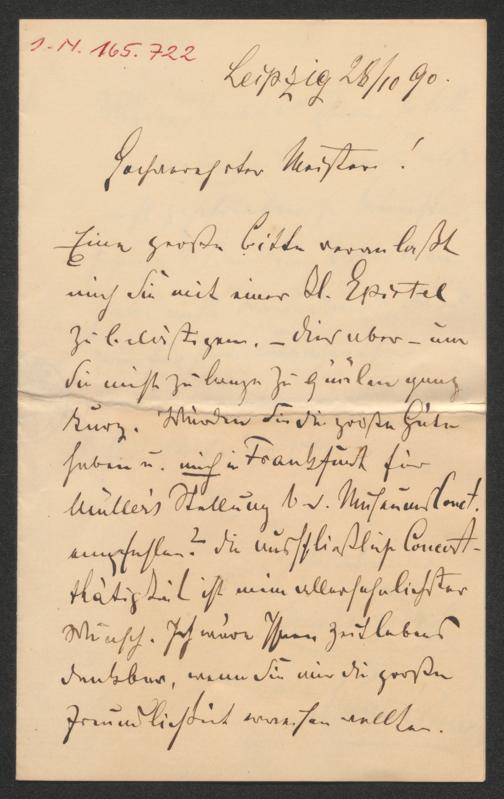 J.-N. 165.722
Leipzig 28/10 90.
Hochverehrter Meister!
Eine große Bitte veranlaßt
mich Sie mit einer kl. Epistel
zu belästigen. – dies aber – um
Sie nicht zu lange zu quälen ganz
kurz. Würden Sie die große Güte
haben u. mich in Frankfurt für
Müller's Stellung b. d. Museums Conc.
empfehlen? die ausschließliche Concert-
thätigkeit ist mein allersehnlichster
Wunsch. Ich wäre Ihnen zeitlebens
dankbar, wenn Sie mir die große
Freundlichkeit erweisen wollten.